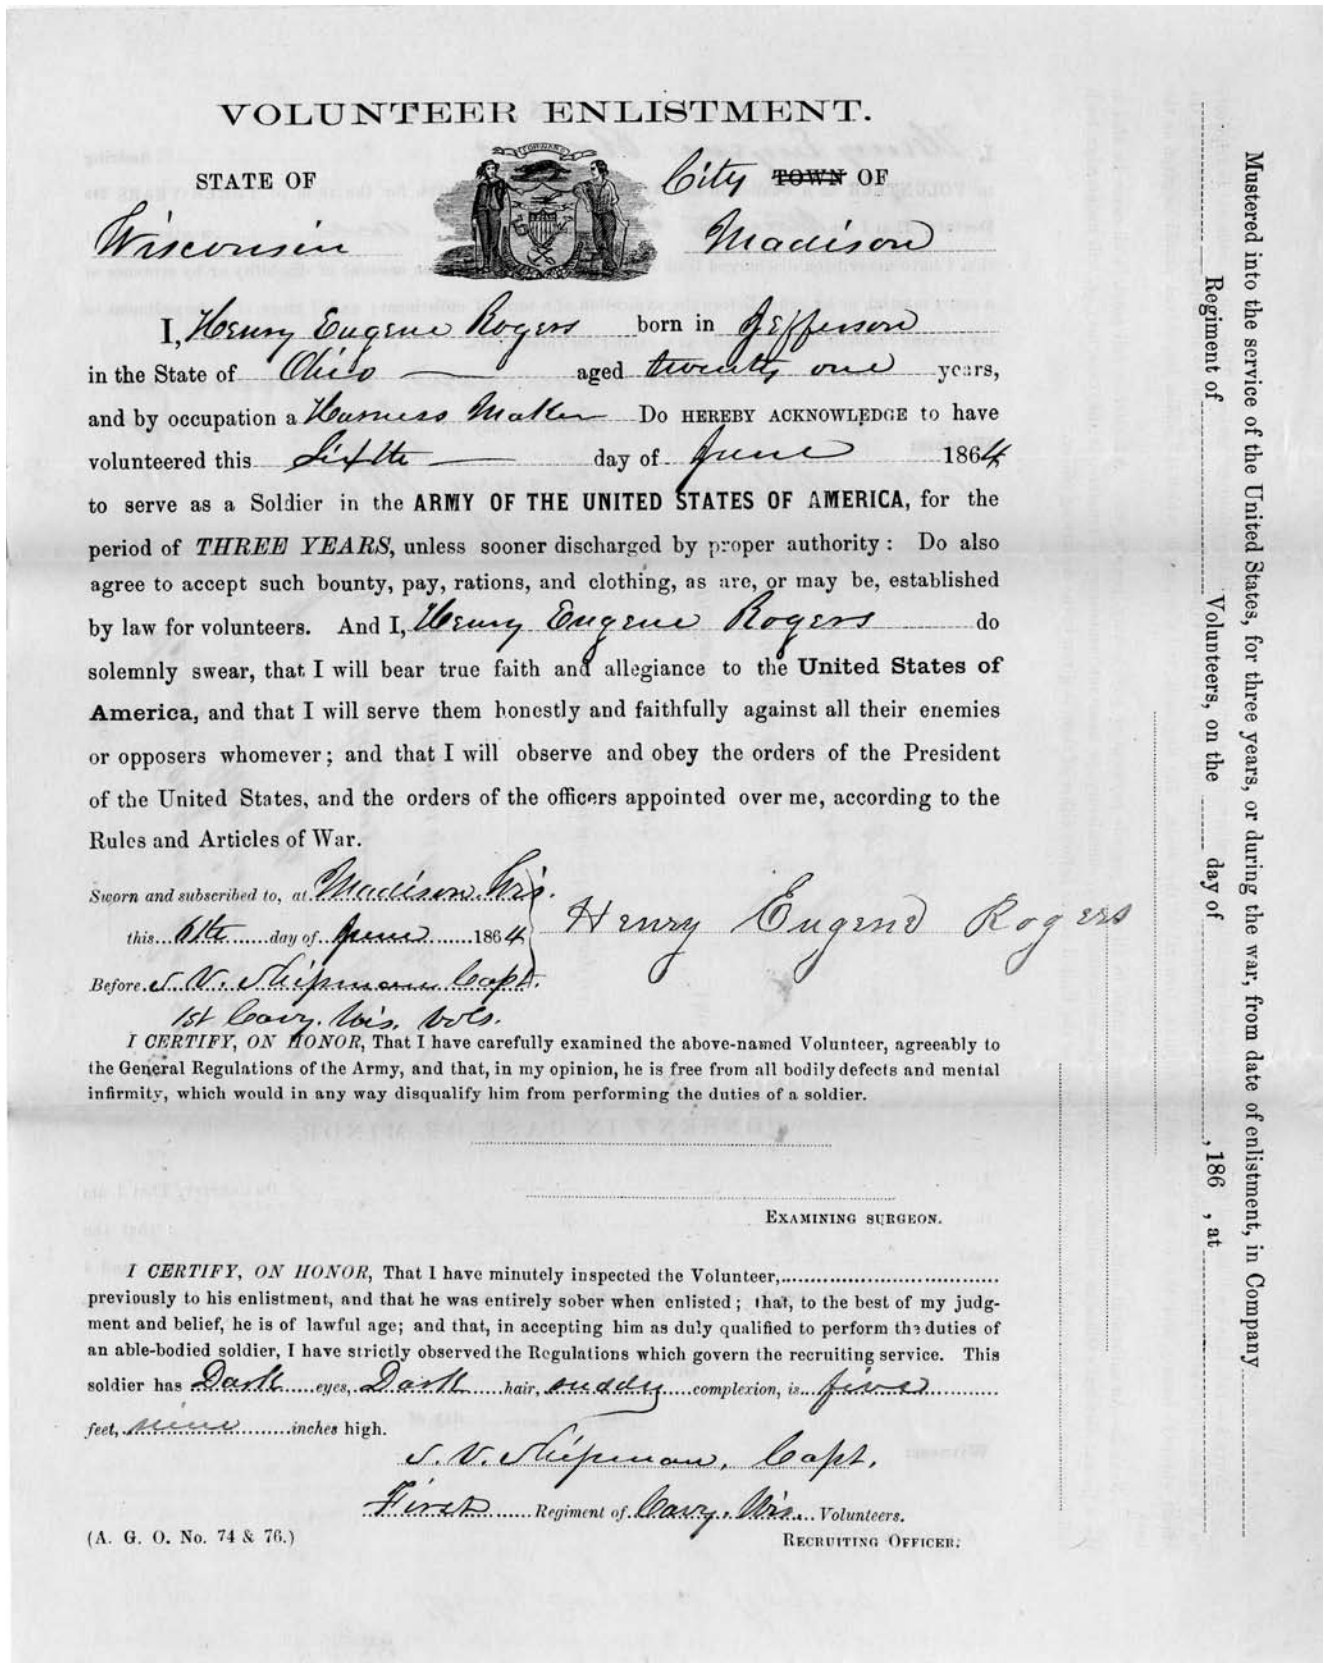 VOLUNTEER ENLISTMENT.
FORWARD
STATE OF City TOWN OF
Wisconsin Madison
I, Henry Eugene Rogers born in Jefferson
in the State of Ohio aged twenty one years,
and by occupation a Harness Maker Do HEREBY ACKNOWLEDGE to have
volunteered this Sixth day of June 1864
to serve as a Soldier in the ARMY OF THE UNITED STATES OF AMERICA, for the
period of THREE YEARS, unless sooner discharged by proper authority: Do also
agree to accept such bounty, pay, rations, and clothing, as are, or may be, established
by law for volunteers. And I, Henry Eugene Rogers do
solemnly swear, that I will bear true faith and allegiance to the United States of
America, and that I will serve them honestly and faithfully against all their enemies
or opposers whomever; and that I will observe and obey the orders of the President
of the United States, and the orders of the officers appointed over me, according to the
Rules and Articles of War.
Sworn and subscribed to, at Madison, Wis.
this 6th day of June 1864
Henry Eugene Rogers
Before S. V. Shipman Capt.
1st Cavy. Wis. Vols.
I CERTIFY, ON HONOR, That I have carefully examined the above-named Volunteer, agreeably to
the General Regulations of the Army, and that, in my opinion, he is free from all bodily defects and mental
infirmity, which would in any way disqualify him from performing the duties of a soldier.
EXAMINING SURGEON.
I CERTIFY, ON HONOR, That I have minutely inspected the Volunteer,
previously to his enlistment, and that he was entirely sober when enlisted; that, to the best of my judg-
ment and belief, he is of lawful age; and that, in accepting him as duly qualified to perform the duties of
an able-bodied soldier, I have strictly observed the Regulations which govern the recruiting service. This
soldier has Dark eyes, Dark hair, ruddy complexion, is five
feet, nine inches high.
S. V. Shipman, Capt.
First Regiment of Cavy. Wis. Volunteers.
(A. G. O. No. 74 & 76.) RECRUITING OFFICER.
Mustered into the service of the United States, for three years, or during the war, from date of enlistment, in Company
Regiment of Volunteers, on the day of , 186 , at